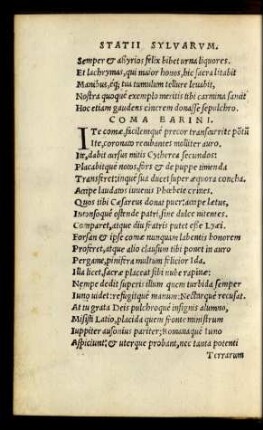 STATII SYLVARVM.
Semper & assyrios felix bibet urna liquores.
Et lachrymas, qui maior honos, hic sacra litabit
Manibus, éq; tua tumulum tellure leuabit,
Nostra quoqué exemplo meritis tibi carmina sanxit
Hoc etiam gaudens cinerem donasse sepulchro.
COMA EARINI.
ITe comæ, facilemqué precor transcurrite põtũ
Ite, coronato recubantes molliter auro.
Ite, dabit cursus mitis Cytherea secundos:
Placabitqué notos, fors & de puppe timenda
Transferet: inqué sua ducet super æquora concha.
Accipe laudatos iuuenis Phœbeie crines.
Quos tibi Cæsareus donat puer: ampe lætus,
Intonsoqué ostende patri, sine dulce nitentes.
Comparet, atque diu fratris putet esse Lyæi.
Forsan & ipse comæ nunquam labentis honorem
Proferet, atque alio clausum tibi ponet in auro
Pergame, pinifera multum felicior Ida.
Illa licet, sacræ placeat sibi nube rapinæ:
Nempe dedit superis illum quem turbida semper
Iuno uidet: refugitqué manum: Nectarqué recusat.
At tu grata Deis pulchroqué insignis alumno,
Misisti Latio, placida quem fronte ministrum
Iuppiter ausonius pariter; Romanaqué Iuno
Aspiciunt: & uterque probant, nec tanta potenti
Terrarum